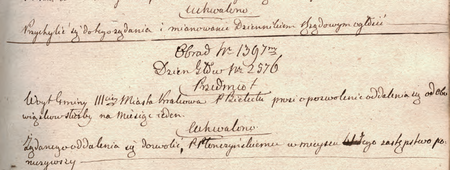 Uchwalono
Przychylić się do tego żądania i mianowanie Dziennikiem rządowym ogłosić
Obrad Nr 1397m
Dzien: Głów: Nr 2576
Przedmiot
Woyt Gminy III Miasta Krakowa P. prosi o pozwolenie oddalenia się od obo
wiązków służby na miesiąc jeden
Uchwalono
Żądanego oddalenia się dozwolić, P. w mieyscu tego zastępstwo po
ruczywszy